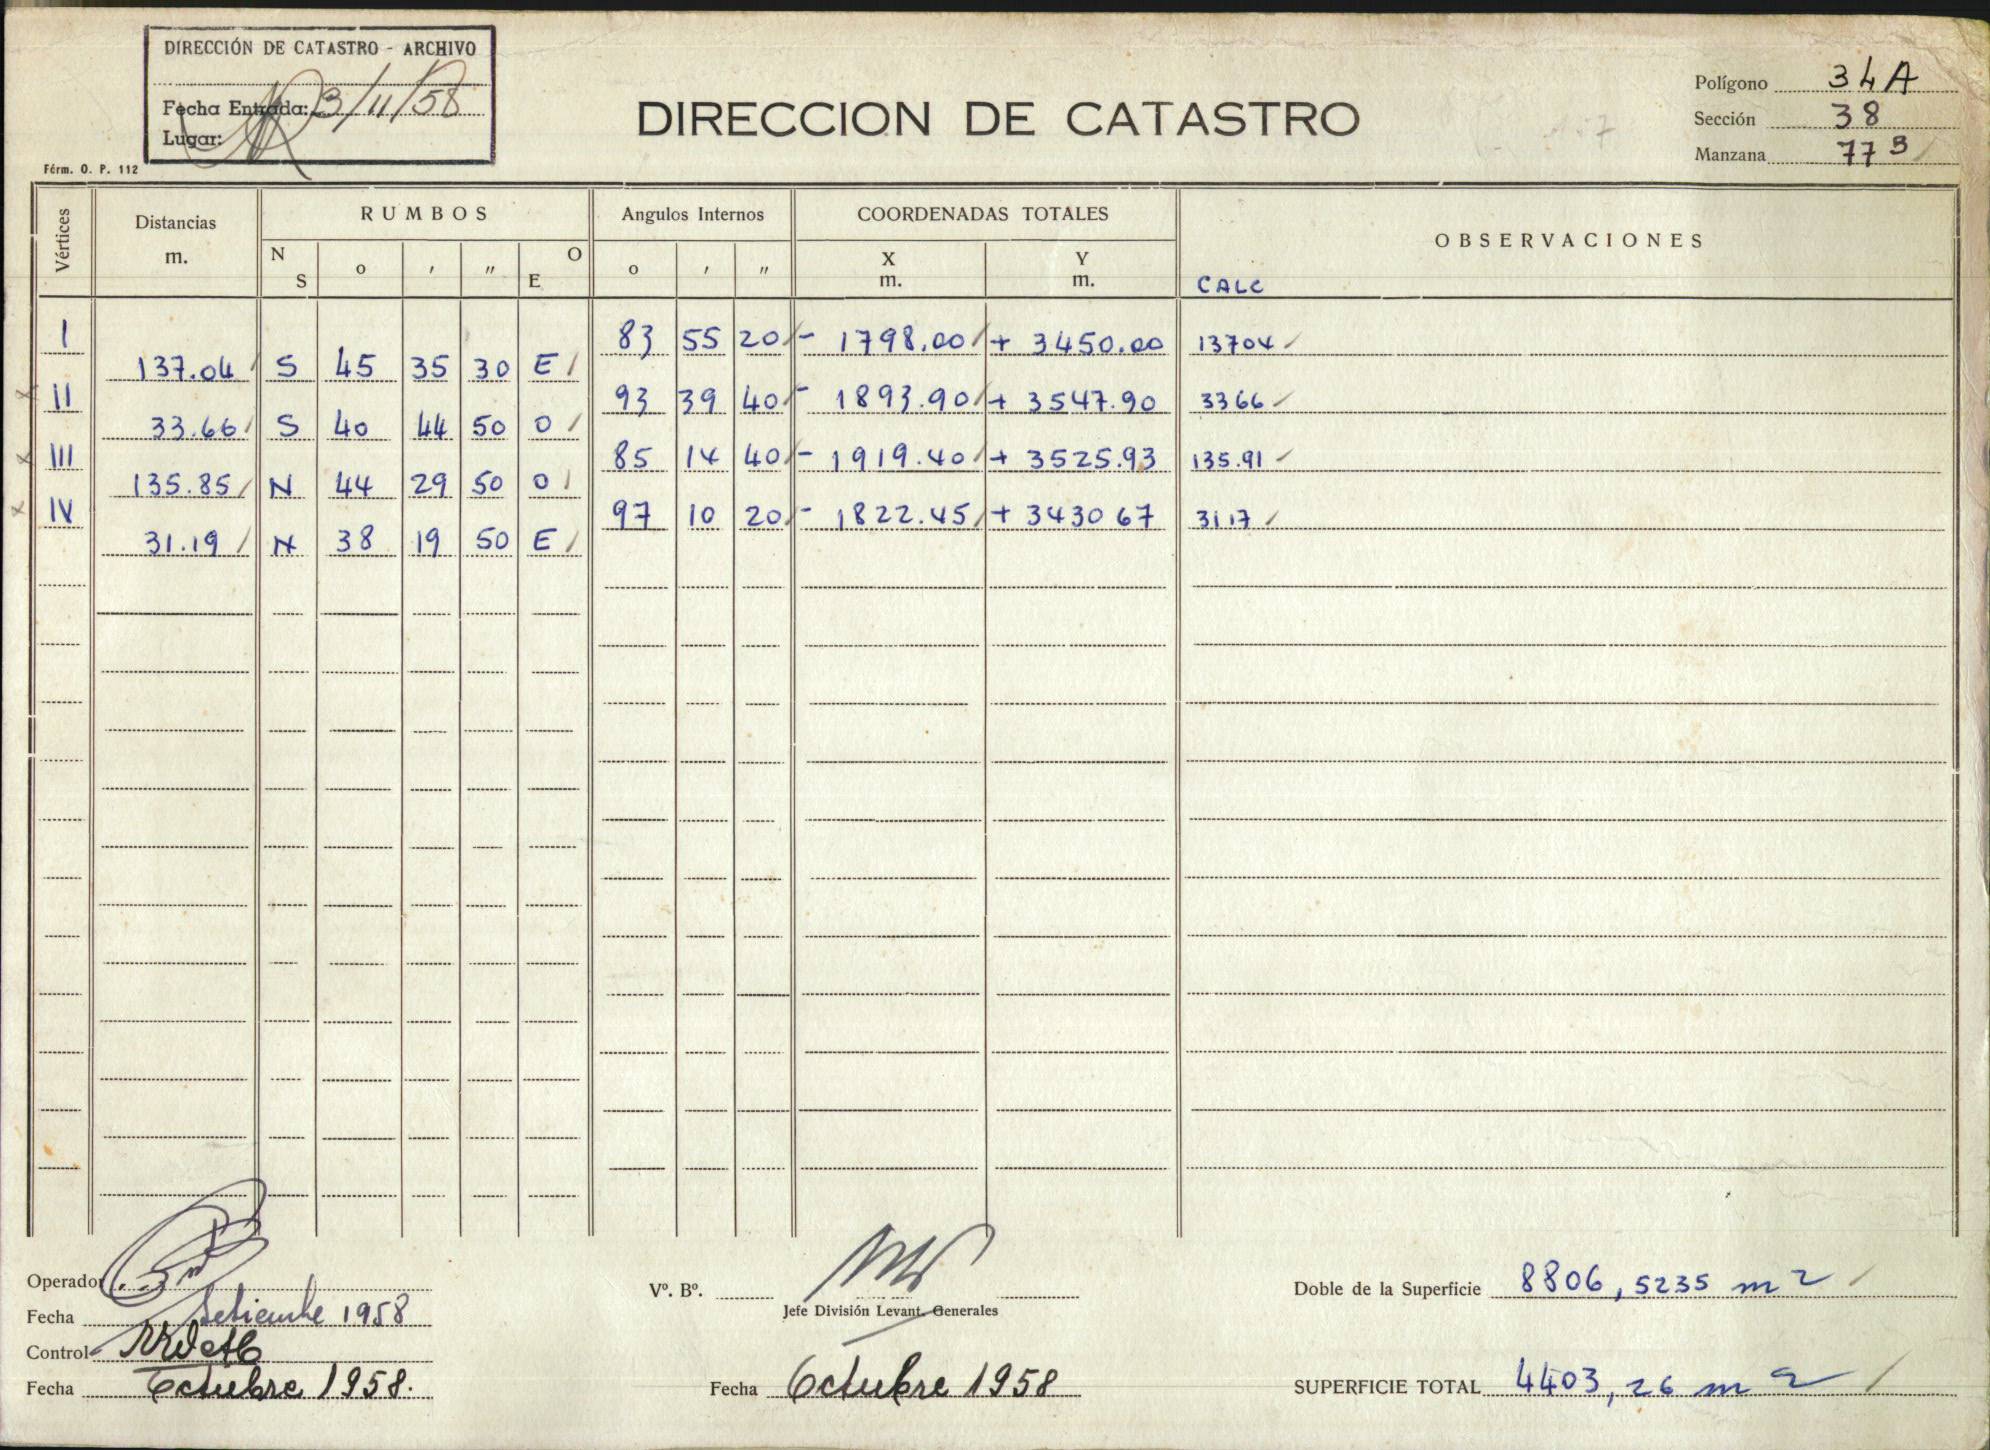 DIRECCIÓN DE CATASTRO - ARCHIVO
Fecha Entrada: 3/11/58
Lugar:
Férm. O. P. 112
DIRECCION DE CATASTRO
Polígono 34A
Sección 38
Manzana 77B
Vértices Distancias m. RUMBOS Angulos Internos COORDENADAS TOTALES OBSERVACIONES
N S o ' " O E o ' " X m. Y m. CALC
I 83 55 20 - 1798.00 + 3450.00 13704
137.04 S 45 35 30 E
II 93 39 40 - 1893.90 + 3547.90 3366
33.66 S 40 44 50 O
III 85 14 40 - 1919.40 + 3525.93 135.91
135.85 N 44 29 50 O
IV 97 10 20 - 1822.45 + 3430 67 31 17
31.19 N 38 19 50 E
Operador
Fecha Setiembre 1958
Control
Fecha Octubre 1958.
Vº. Bº.
Jefe División Levant. Generales
Fecha Octubre 1958
Doble de la Superficie 8806,5235 m2
SUPERFICIE TOTAL 4403,26 m2